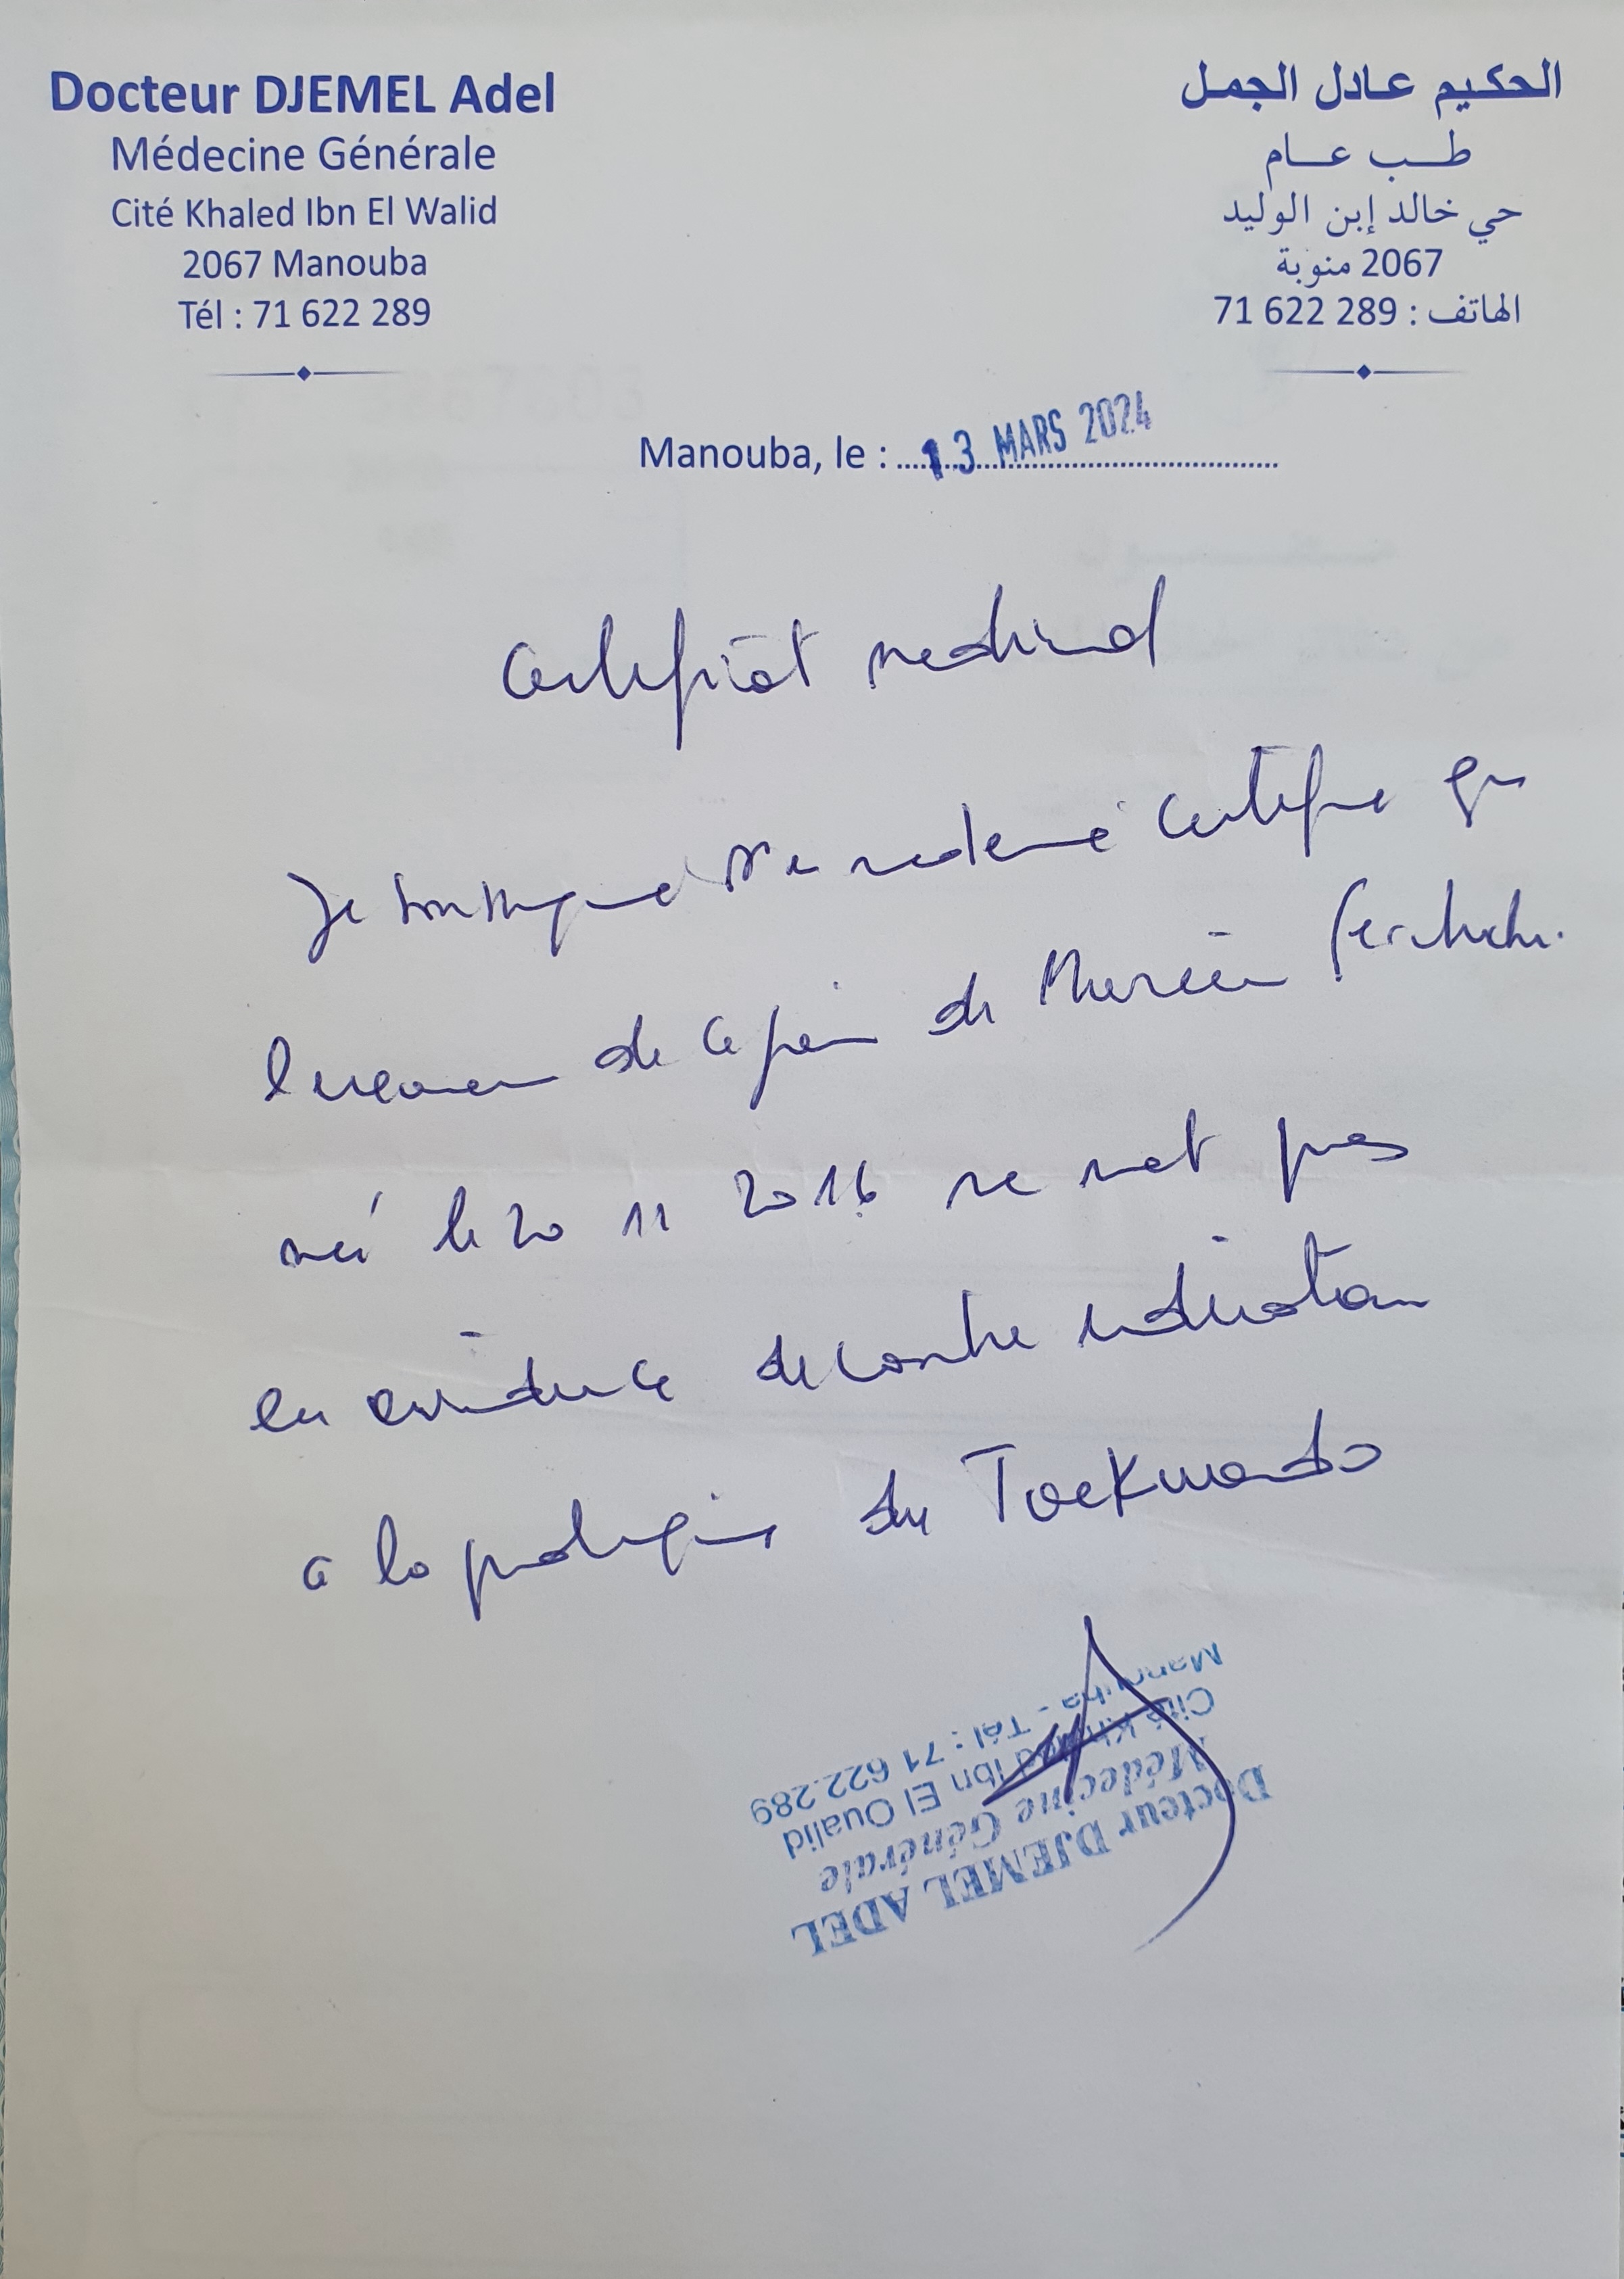 Docteur DJEMEL Adel
Médecine Générale
Cité Khaled Ibn El Walid
2067 Manouba
Tél : 71 622 289
الحكيم عادل الجمل
طب عام
حي خالد إبن الوليد
2067 منوبة
الهاتف : 71 622 289
Manouba, le : 13 MARS 2024
Certificat medical
Je soussigné medecin certifie que
l'examen de ce jour de
né le 20 11 2016 ne met pas
en evidence de contre indication
a la pratique du Taekwondo
Docteur DJEMEL ADEL
Médecine Générale
Cité Khaled Ibn El Oualid
Mannouba - Tél : 71 622.289